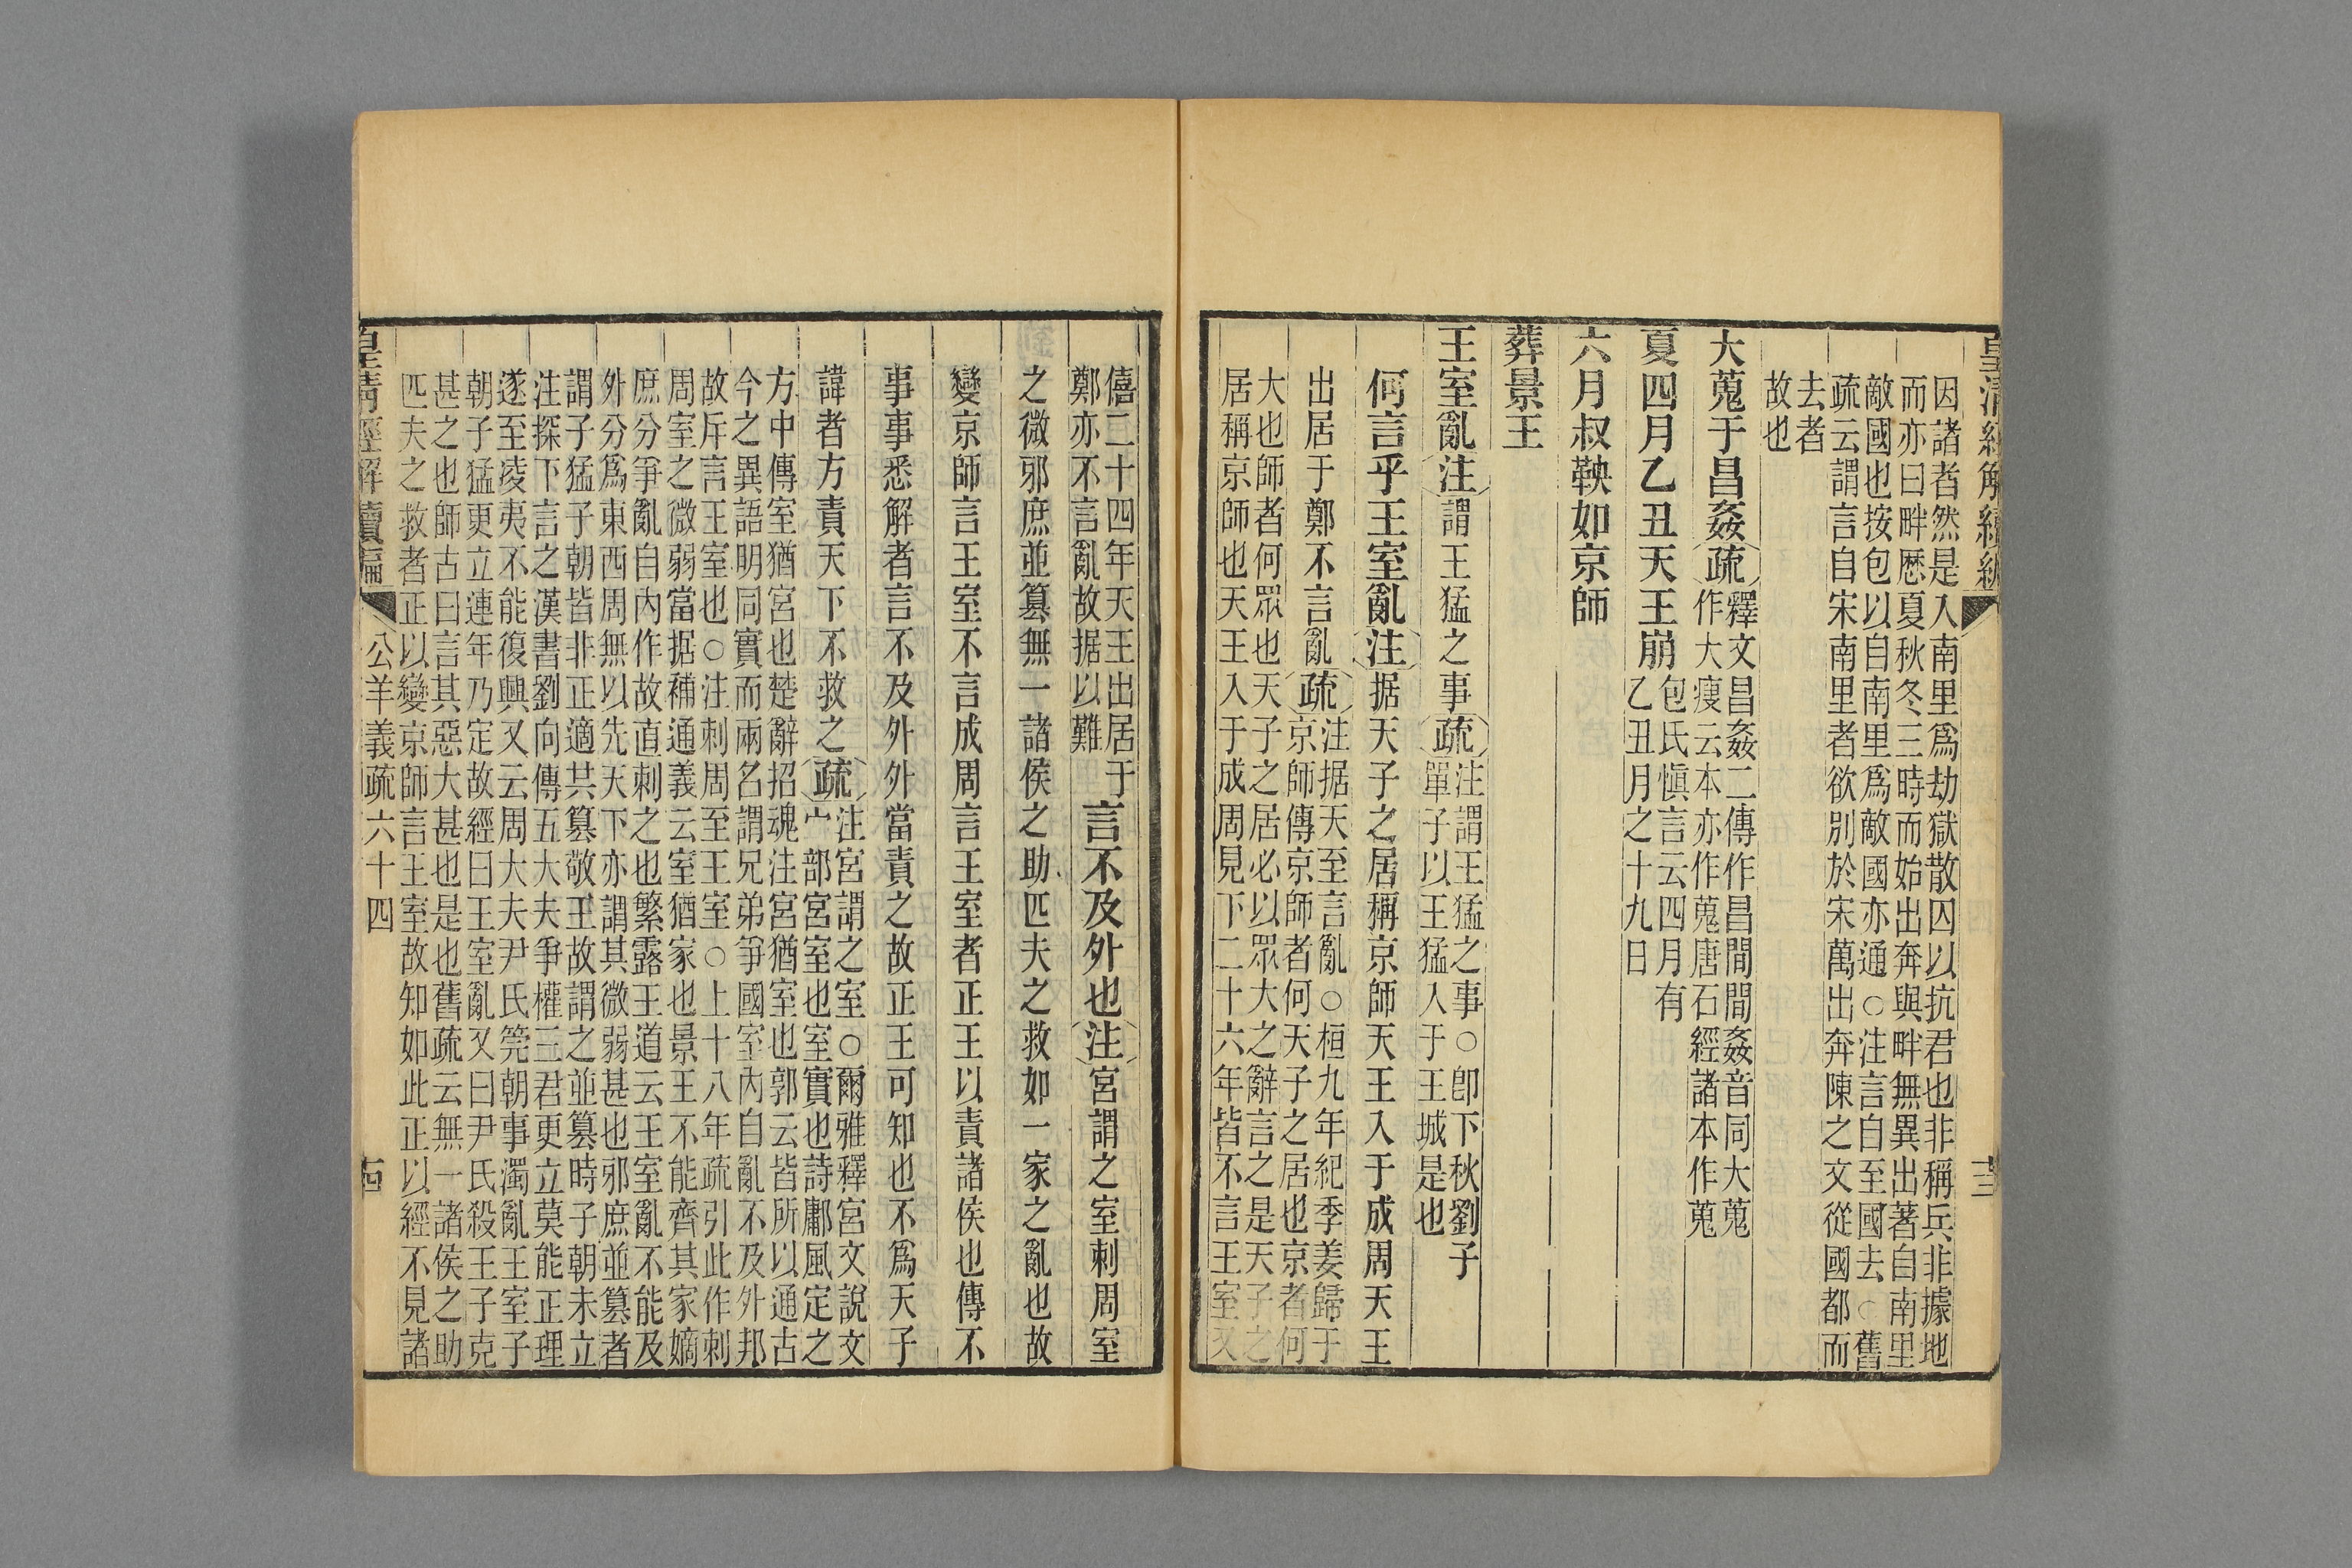 皇清經解續編
十三
因諸者然是入南里爲劫獄散囚以抗君也非稱兵非據地
而亦曰畔厯夏秋冬三時而始出奔與畔無異出著自南里
敵國也按包以自南里爲敵國亦通○注言自至國去○舊
疏云謂言自宋南里者欲別於宋萬出奔陳之文從國都而
去者
故也
大蒐于昌姦疏釋文昌姦二傳作昌間間姦音同大蒐
作大瘦云本亦作蒐唐石經諸本作蒐
夏四月乙丑天王崩包氏愼言云四月有
乙丑月之十九日
六月叔鞅如京師
葬景王
王室亂注謂王猛之事疏注謂王猛之事○卽下秋劉子
單子以王猛入于王城是也
何言乎王室亂注据天子之居稱京師天王入于成周天王
出居于鄭不言亂疏注据天至言亂○桓九年紀季姜歸于
京師傳京師者何天子之居也京者何
大也師者何眾也天子之居必以眾大之辭言之是天子之
居稱京師也天王入于成周見下二十六年皆不言王室又
僖二十四年天王出居于
鄭亦不言亂故据以難
言不及外也注宮謂之室刺周室
之微邪庶並篡無一諸侯之助匹夫之救如一家之亂也故
變京師言王室不言成周言王室者正王以責諸侯也傳不
事事悉解者言不及外外當責之故正王可知也不爲天子
諱者方責天下不救之疏注宮謂之室○爾雅釋宮文說文
宀部宮室也室實也詩鄘風定之
方中傳室猶宮也楚辭招魂注宮猶室也郭云皆所以通古
今之異語明同實而兩名謂兄弟爭國室內自亂不及外邦
故斥言王室也○注刺周至王室○上十八年疏引此作刺
周室之微弱當据補通義云室猶家也景王不能齊其家嫡
庶分爭亂自內作故直刺之也繁露王道云王室亂不能及
外分爲東西周無以先天下亦謂其微弱甚也邪庶並篡者
謂子猛子朝皆非正適共篡敬王故謂之並篡時子朝未立
注探下言之漢書劉向傳五大夫爭權三君更立莫能正理
遂至凌夷不能復興又云周大夫尹氏筦朝事濁亂王室子
朝子猛更立連年乃定故經曰王室亂又曰尹氏殺王子克
甚之也師古曰言其惡大甚也是也舊疏云無一諸侯之助
匹夫之救者正以變京師言王室故知如此正以經不見諸
皇清經解續編
公羊義疏六十四
十四